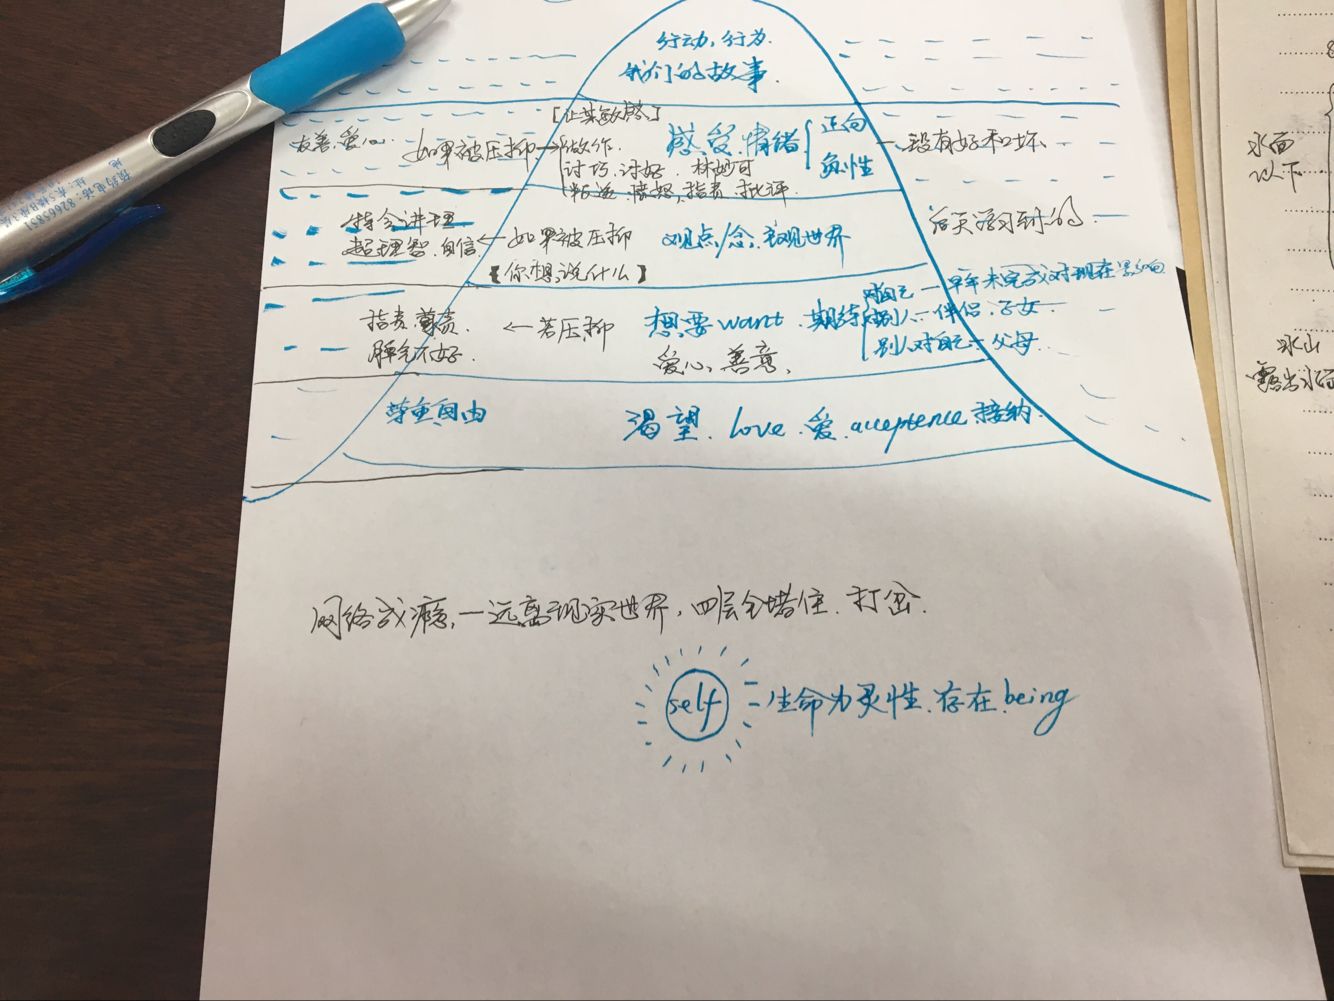 行动,行为.
我们的故事.
友善.爱心. 如果被压抑→ 做作. 感受.情绪 正向 负性 —没有好和坏.
讨巧.讨好. 林妙可
叛逆.愤怒,指责.批评.
特会讲理.
超理智.自信←如果被压抑 观点/念,主观世界 后天学习到的
【你想说什么】
指责.
脾气不好. ←若压抑 想要want.期待
对自己—早年未完成对现在影响
对别人—伴侣.子女
别人对自己—父母.
爱心,善意,
尊重自由 渴望.love.爱.acceptence接纳.
网络成瘾,—远离现实世界,四层全堵住.打岔.
self —生命力灵性.存在.being
水面
以下
冰山